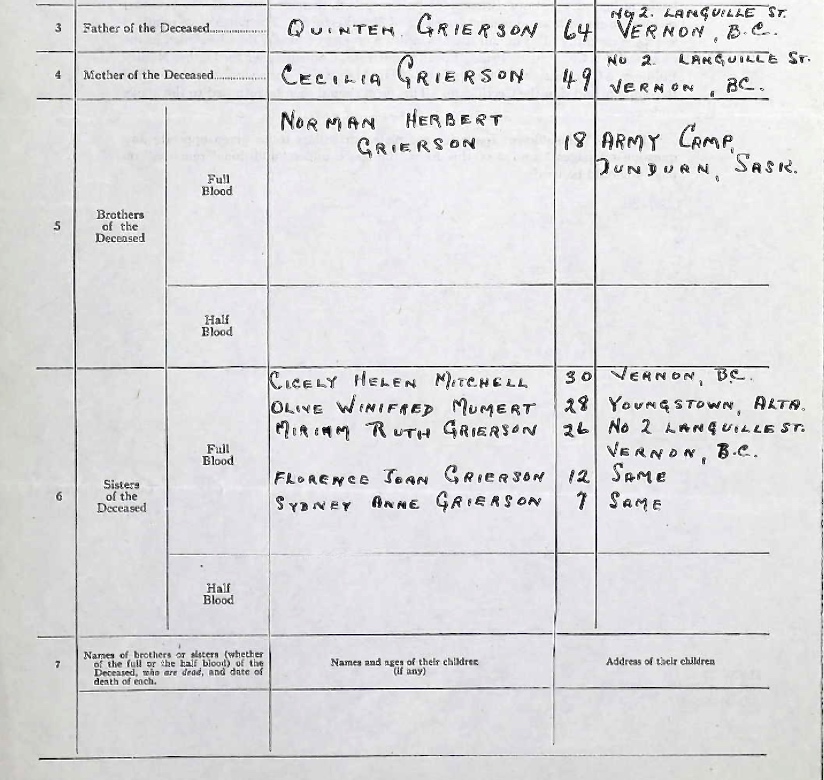 No 2. LANGUILLE ST.
3 Father of the Deceased.............. QUINTEN GRIERSON 64 VERNON, B.C.
4 Mother of the Deceased............. CECILIA GRIERSON 49 No 2 LANGUILLE ST.
VERNON, BC.
NORMAN HERBERT
GRIERSON 18 ARMY CAMP,
DUNDURN, SASK.
Full
Blood
5 Brothers
of the
Deceased
Half
Blood
CICELY HELEN MITCHELL 30 VERNON, B.C.
OLIVE WINIFRED MUMERT 28 YOUNGSTOWN, ALTA.
MIRIAM RUTH GRIERSON 26 No 2 LANGUILLE ST.
VERNON, B.C.
Full
Blood
FLORENCE JOAN GRIERSON 12 SAME
6 Sisters
of the
Deceased
SYDNEY ANNE GRIERSON 7 SAME
Half
Blood
7 Names of brothers or sisters (whether
of the full or the half blood) of the
Deceased, who are dead, and date of
death of each.
Names and ages of their children
(if any)
Address of their children